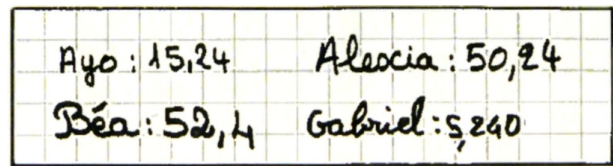 Ayo : 15,24 Alexcia : 50,24
Béa : 52,4 Gabriel : 5,240